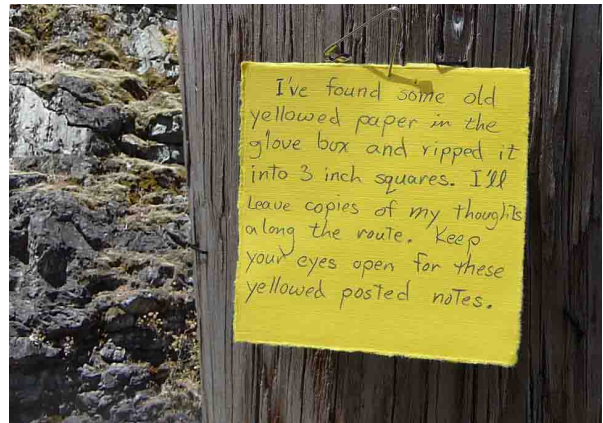 I've found some old
yellowed paper in the
glove box and ripped it
into 3 inch squares. I'll
Leave copies of my thoughts
along the route. Keep
your eyes open for these
yellowed posted notes.